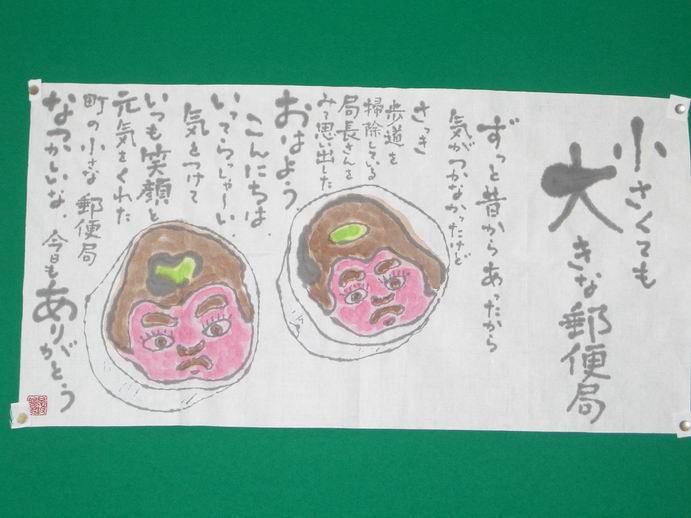 小さくても
大きな郵便局
ずっと昔からあったから
気がつかなかったけど
さっき
歩道を
掃除している
局長さんを
みて思い出した
おはよう
こんにちは、
いってらっしゃ〜い、
気をつけて
いつも笑顔と
元気をくれた
町の小さな郵便局
なつかしいな、今日もありがとう